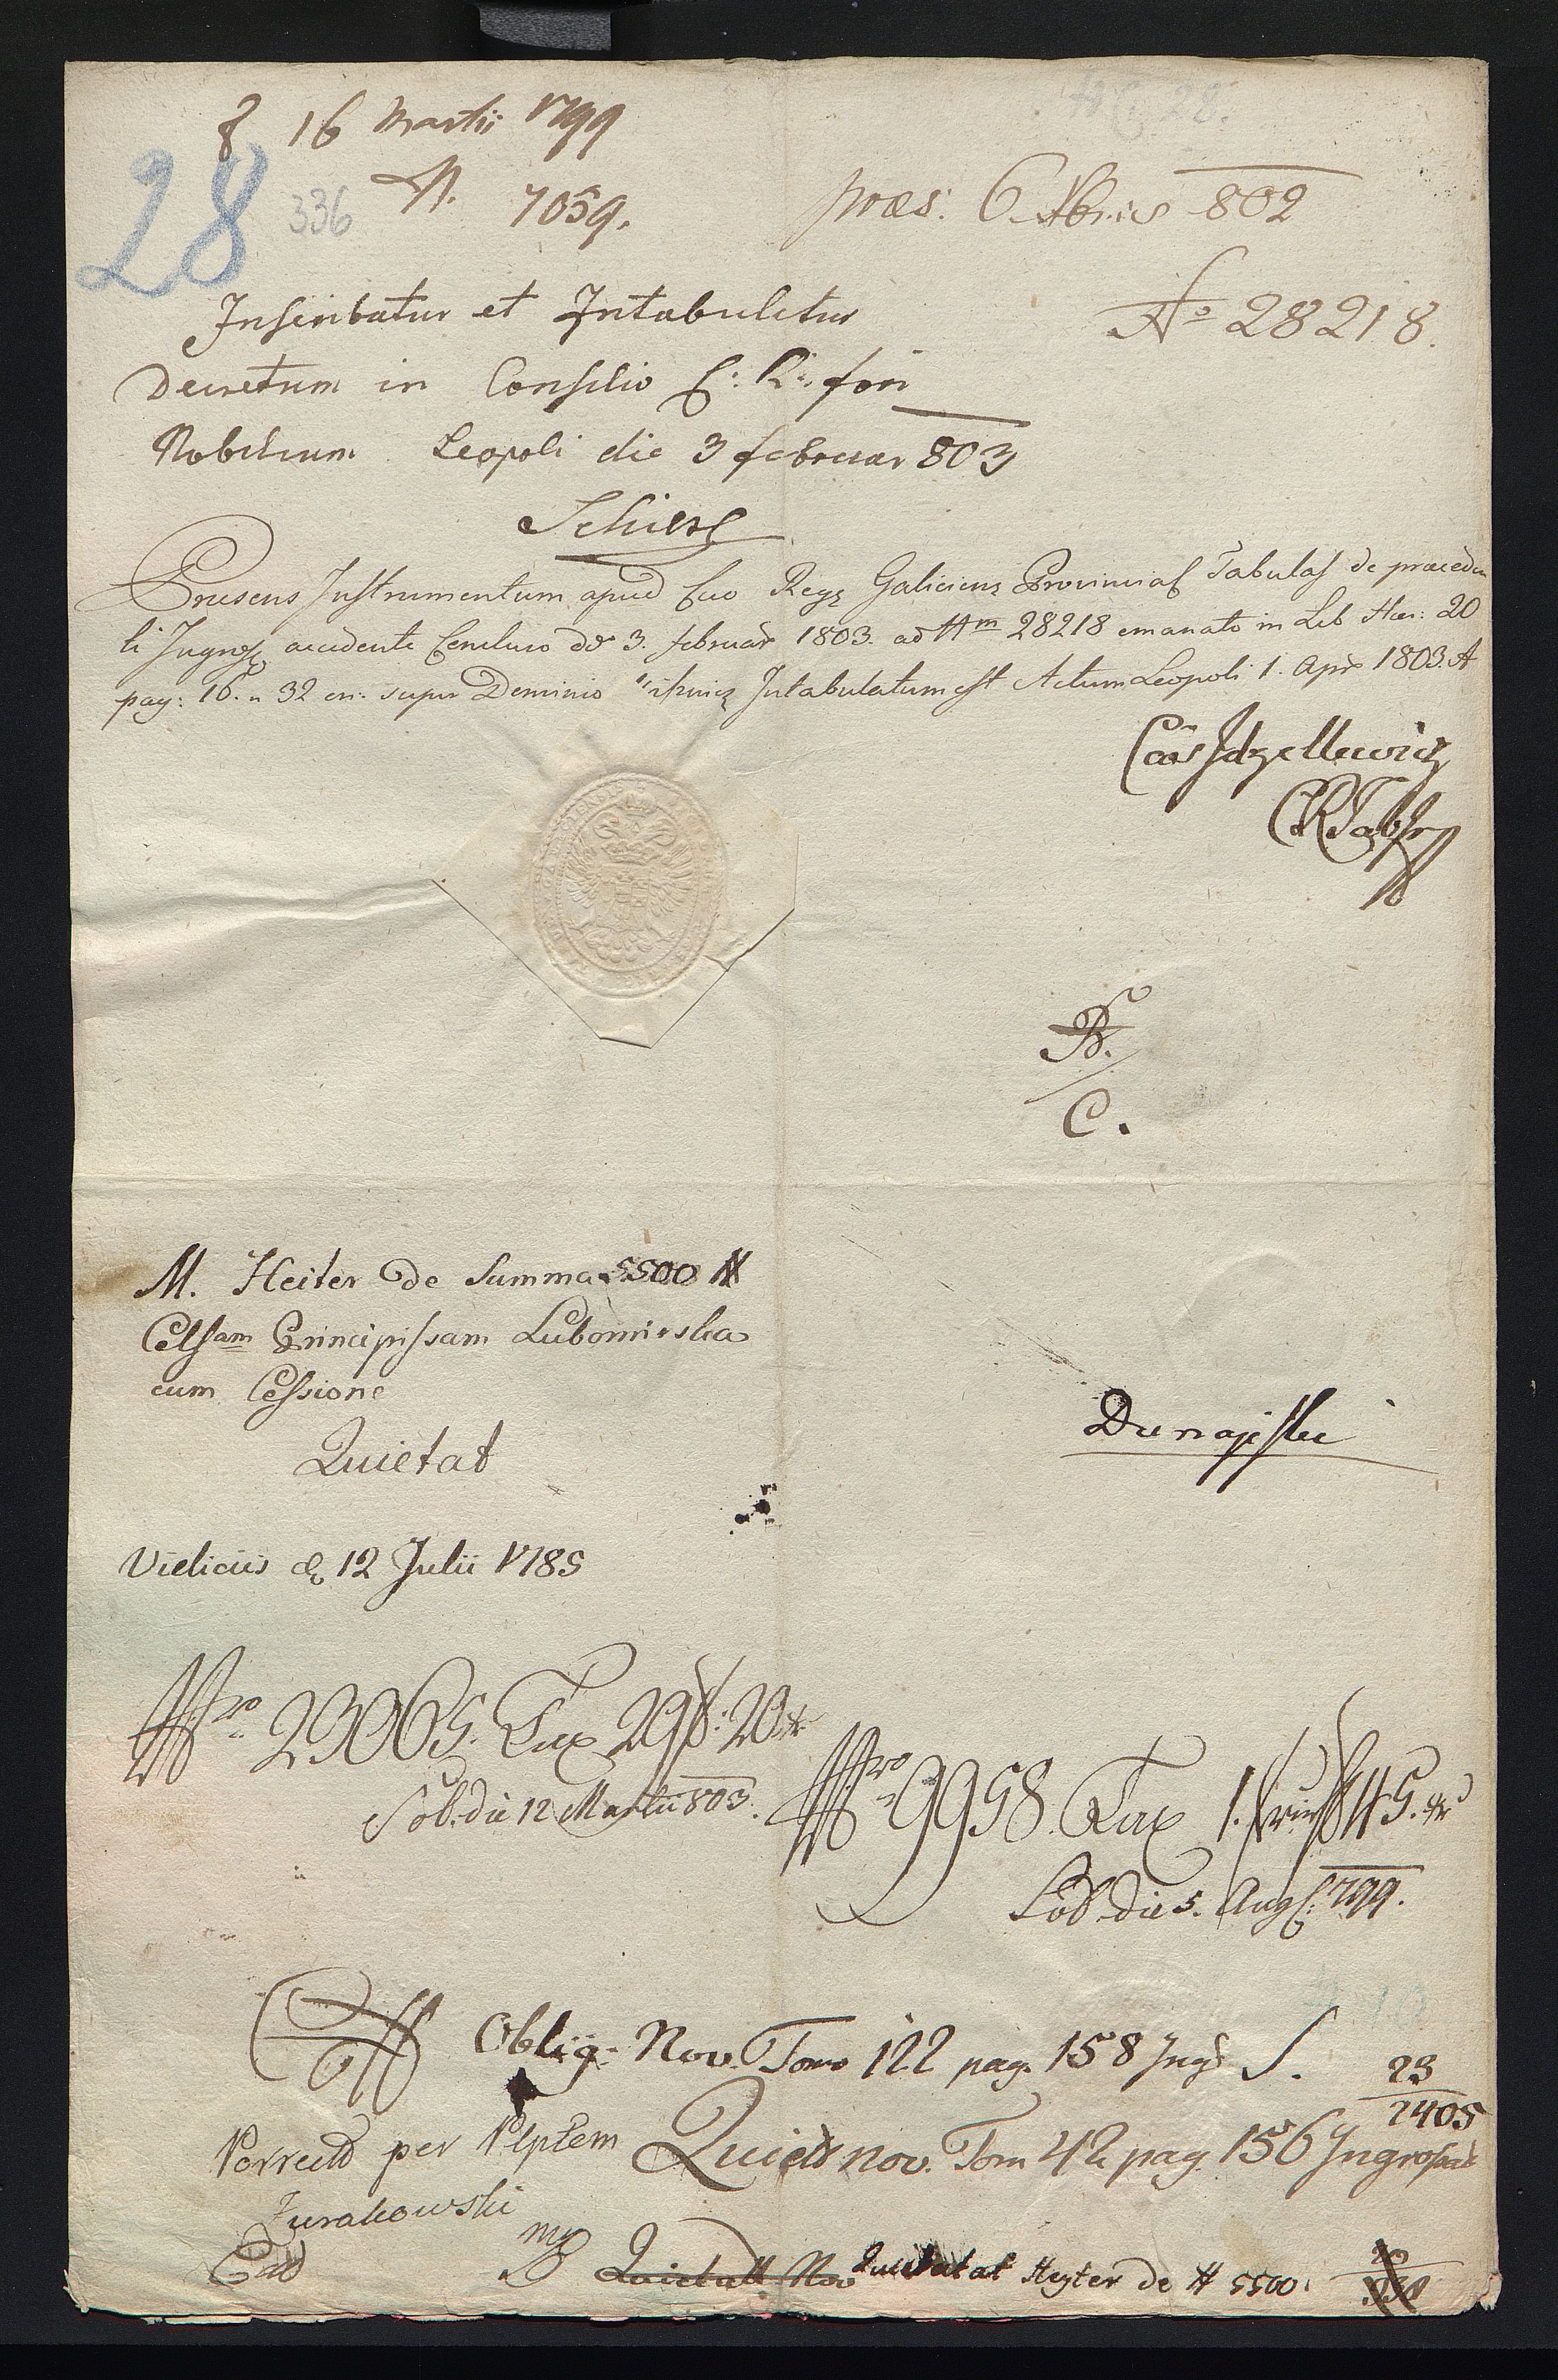 16 Martii 1799
28 336 N. 7059.
præs. 6 Xbris 802
No 28218.
Inscribatur et Intabuletur
Decretum in Consilio C: R: fori
Nobilium Leopoli die 3 februar 803
Præsens Instrumentum apud Cæo Regs Galiciens Provincial Tabulas de præceden
ti Ingross accedente Concluso ddo 3. februar 1803 ad Nrm 28218 emanato in Lib Hær: 20
pag: 16. n 32 on: super Dominio Intabulatum est Actum Leopoli 1. Apr 1803.
B.
C.
M. Heiter de Summa 5500 #
Celsam Principissam Lubomirska
cum Cessione
Quietat
Dunajski
Vieliciis d 12 Julii 1785
Nro 23065. Tax 29 f: 20 xr
Sol. die 12 Martii 803.
Nro 9958. Tax 1. 45. xr
Sol. die 5. Aug: 799.
Oblig: Nov. Tomo 122 pag. 158 Ingr S. 23
2405
Porrect per Plptem Quiet nov. Tom 42 pag. 156 Ingrossat
Zurakowski
mp Quietat Nov Quietat Heyter de # 5500.